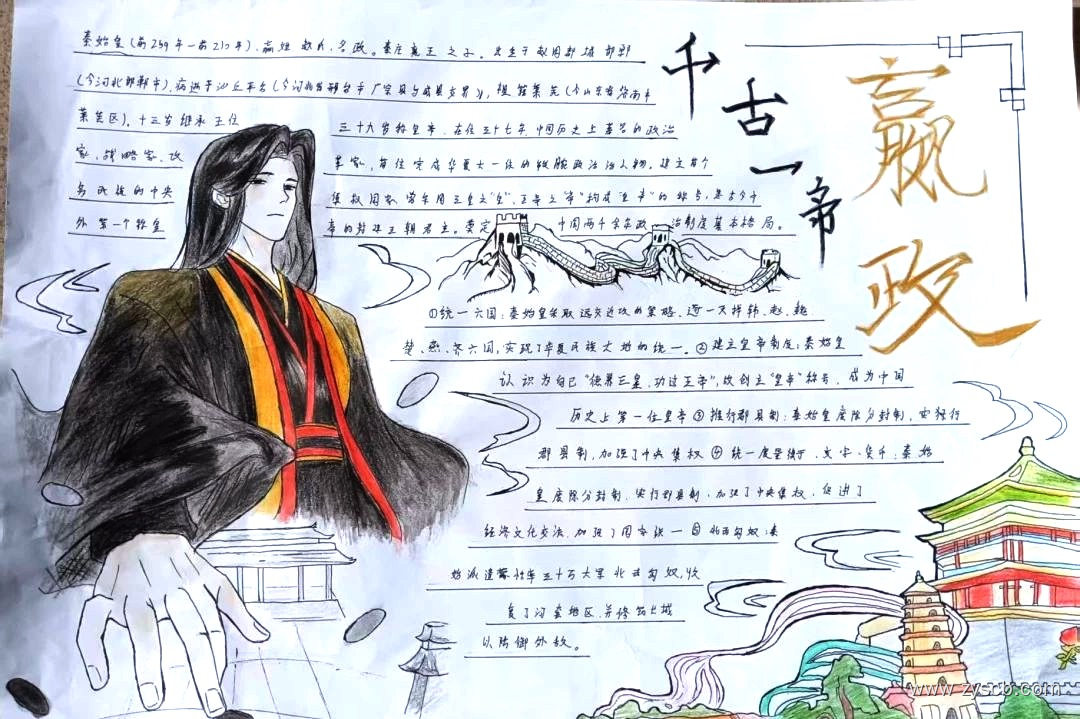 千古一帝
嬴政
秦始皇(前259年一前210年),嬴姓赵氏,名政。秦庄襄王之子。出生于赵国都城邯郸
(今河北邯郸市),病逝于沙丘平台(今河北省邢台市广宗县与威县交界),祖籍莱芜(今山东省济南市
莱芜区),十三岁继承王位
三十九岁称皇帝,在位三十七年,中国历史上著名的政治
家,战略家,改
革家,首位完成华夏大一统的铁腕政治人物。建立首个
多民族的中央
集权国家,曾采用三皇之"皇"、五帝之"帝"构成"皇帝"的称号,是古今中
外第一个称皇
帝的封建王朝君主。奠定
中国两千余年政
治制度基本格局。
①统一六国:秦始皇采取远交近攻的策略,逐一灭掉韩、赵、魏、
楚、燕、齐六国,实现了华夏民族大地的统一。②建立皇帝制度:秦始皇
认识为自己"德兼三皇,功过五帝",故创立"皇帝"称号,成为中国
历史上第一位皇帝③推行郡县制:秦始皇废除分封制,实行
郡县制,加强了中央集权④统一度量衡、文字、货币:秦始
皇废除分封制,实行郡县制,加强了中央集权,促进了
经济文化交流,加强了国家统一⑤北击匈奴:秦
始派遣蒙恬率三十万大军北击匈奴,收
复了河套地区,并修筑长城
以防御外敌。
www.zyscb.com